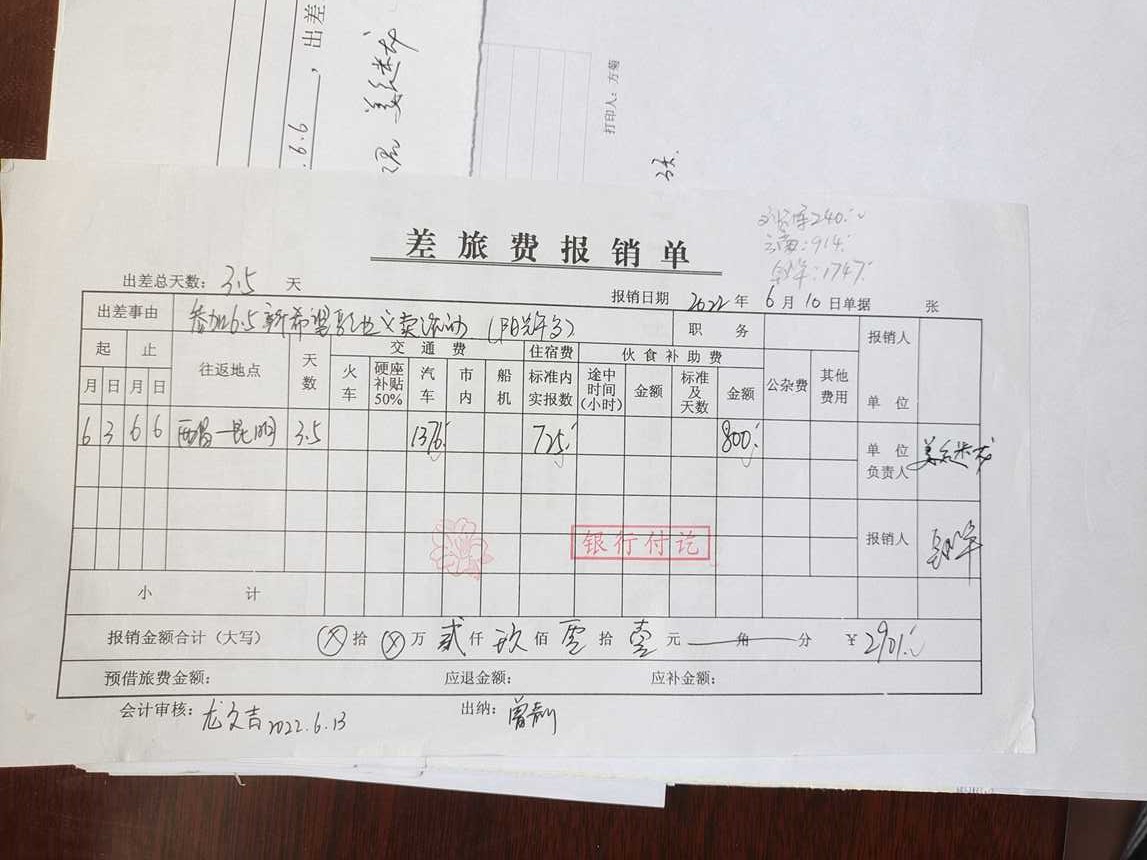 , 出差
6.6
打印人：方菊
240.
云南：914.
1747.
差旅费报销单
出差总天数：3.5 天
报销日期 2022 年 6 月 10 日单据 张
出差事由 参加6.5新希望 职务 报销人
起 止 往返地点 天数 交通费 住宿费 伙食补助费 公杂费 其他费用
月 日 月 日 火车 硬座补贴50% 汽车 市内 船机 标准内实报数 途中时间(小时) 金额 标准及天数 金额 单位
6 3 6 6 西昌—昆明 3.5 1376. 725. 800. 单位负责人
银行付讫 报销人
小计
报销金额合计（大写） ⊗ 拾 ⊗ 万 贰 仟 玖 佰 零 拾 壹 元 角 分 ￥2901.
预借旅费金额： 应退金额： 应补金额：
会计审核：龙文吉 2022.6.13 出纳：